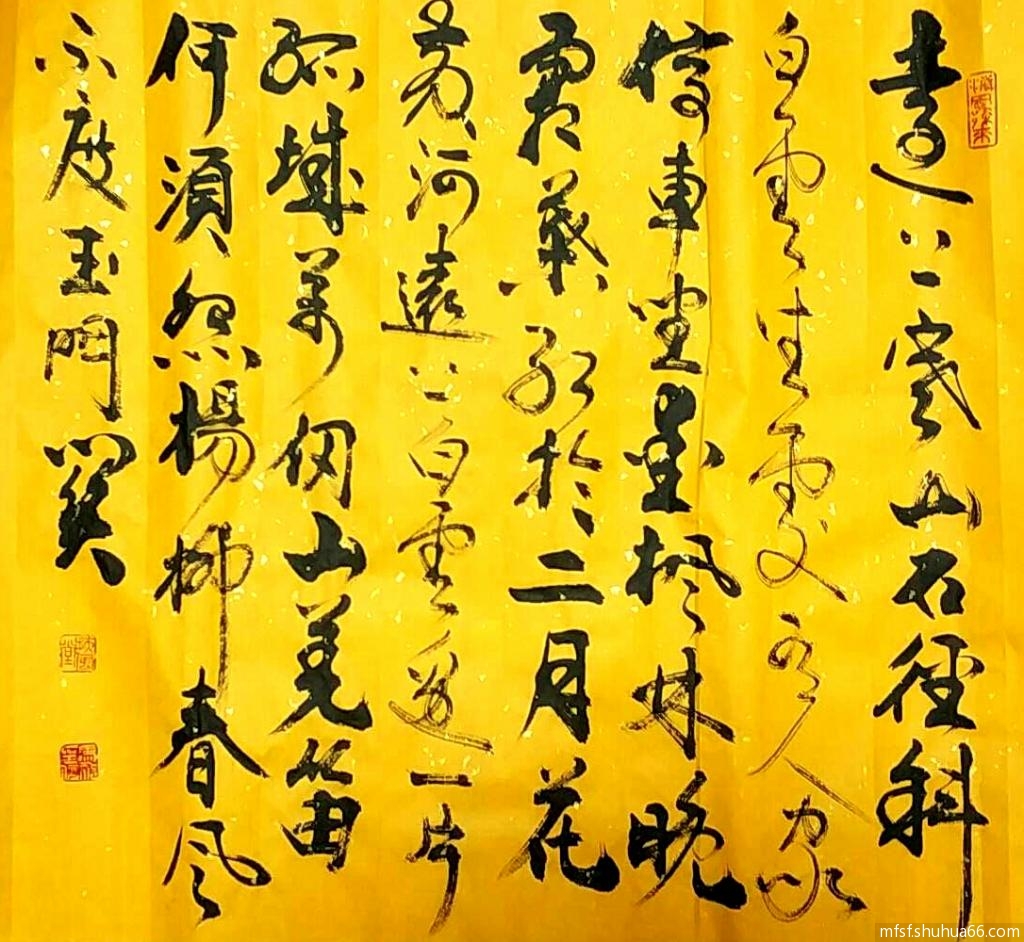 遠上寒山石徑斜
白雲生處有人家
停車坐愛楓林晚
霜葉紅於二月花
黃河遠上白雲邊一片
孤城萬仞山羌笛
何須怨楊柳春風
不度玉門關
mfsf.shuhua66.com